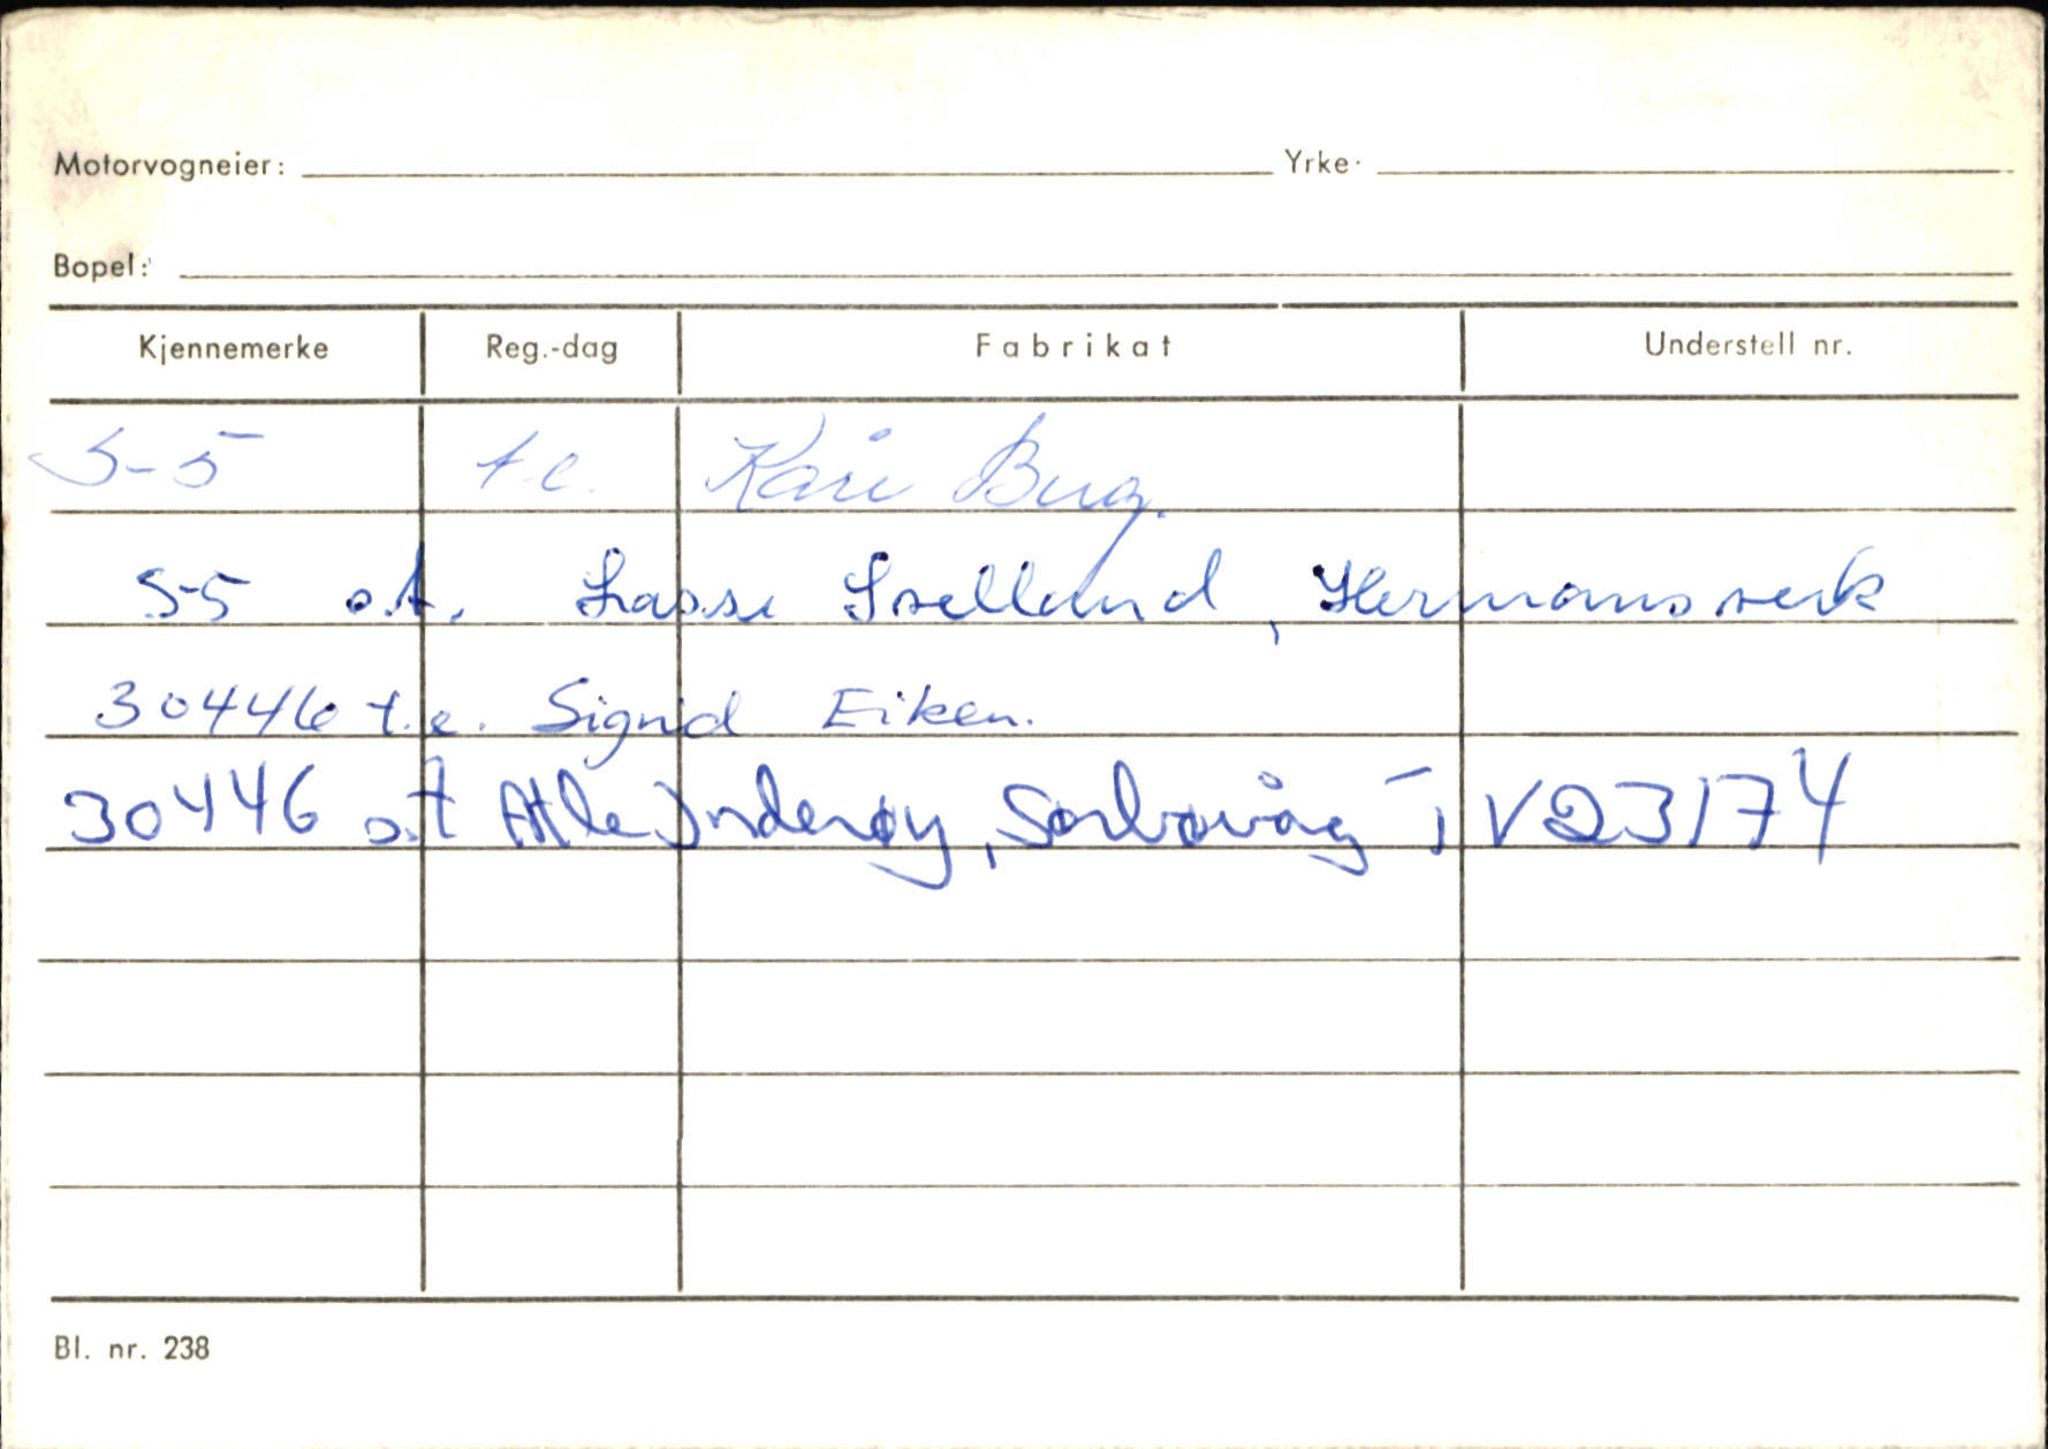 Motorvogneier: Yrke.
Bopel:
Kjennemerke Reg.-dag Fabrikat Understell nr.
S-5 t.e. Kåre Berg.
S-5 o.t. Lasse Svelland, Hermansverk
30446 t.e. Sigrid Eiken.
30446 o.t Atle Inderøy, Sørbøvåg - , V23174
Bl. nr. 238